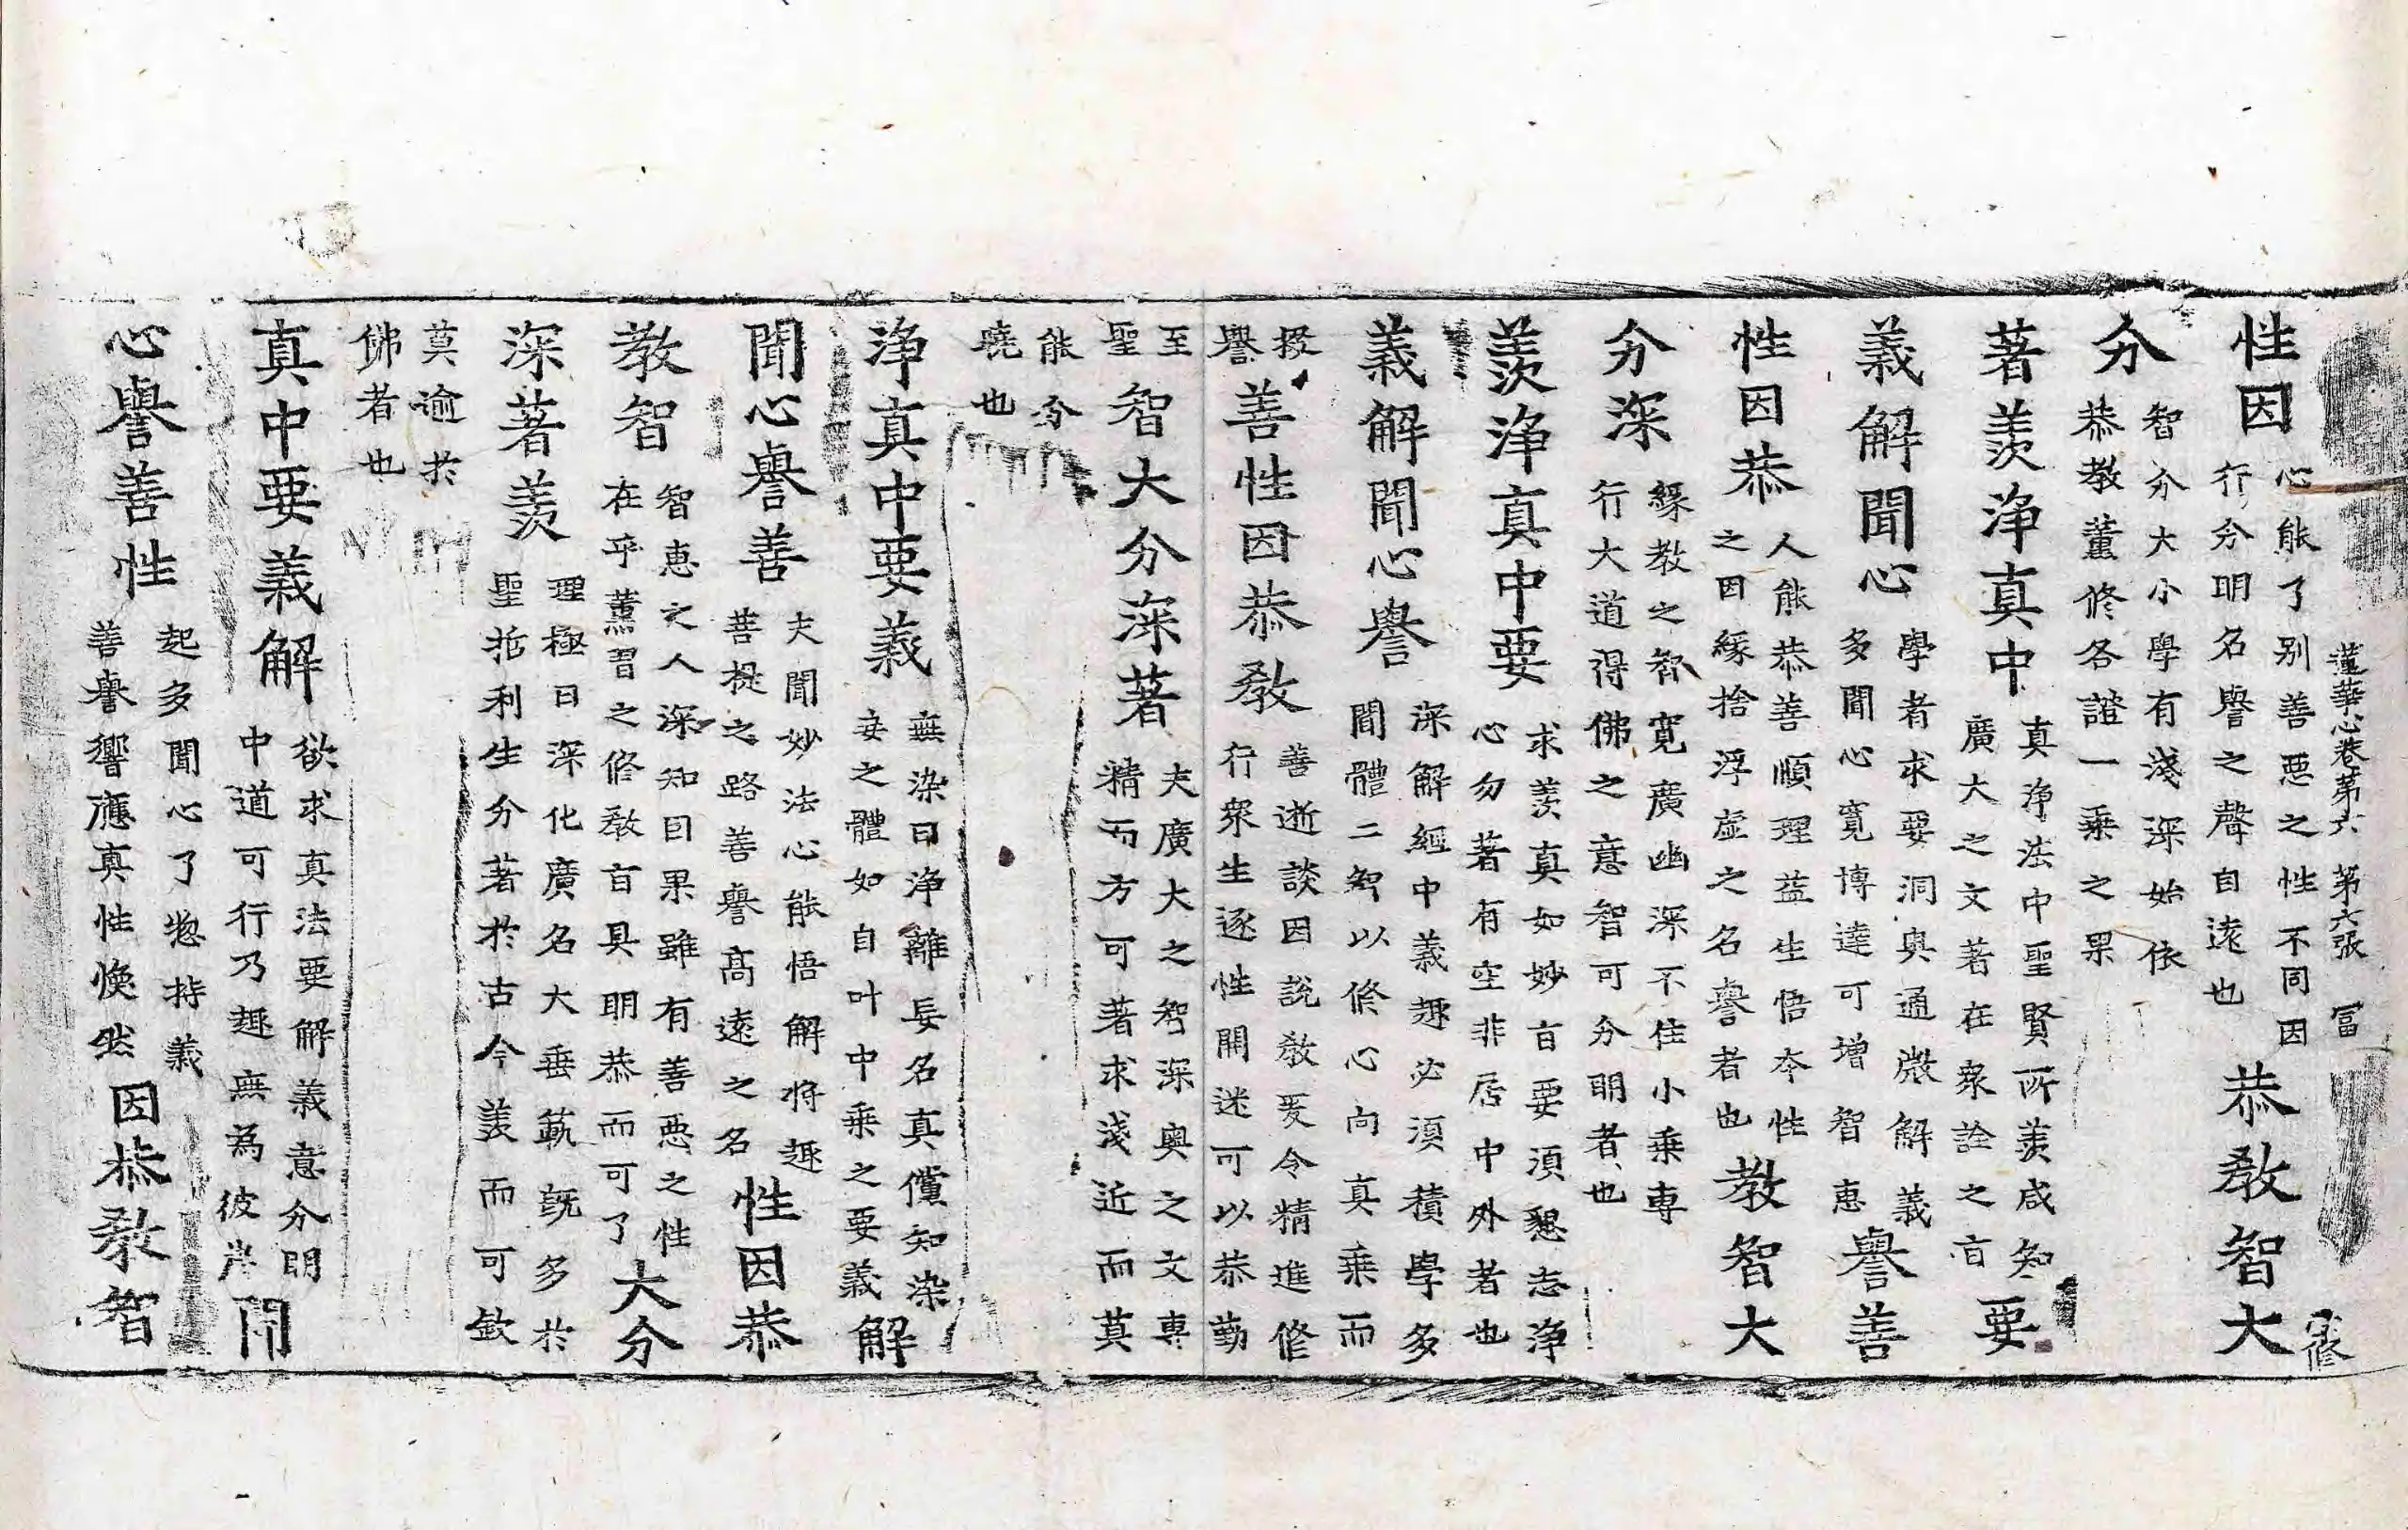 蓮華心卷第六 第六張 冨
性因心能了别善惡之性不同因行分明名譽之聲自遠也恭教智大
分智分大小學有淺深始依恭教薰修各證一乘之果
著羨淨真中真淨法中聖賢所羨咸知廣大之文著在衆詮之㫖要
義解聞心學者求要洞奥通微解義多聞心寛博達可增智惠譽善
性因恭人能恭善順理益生悟夲性之因緣捨浮虛之名譽者也教智大
分深緣教之智寛廣幽深不住小乘專行大道得佛之意智可分明者也
羨淨真中要求羨真如妙㫖要須懇志淨心勿著有空非居中外者也
義解聞心譽深解經中義趣必須積學多聞體二智以修心向真乘而
掇譽善性因恭教善逝談因說教爰令精進修行衆生逐性開迷可以恭勤
至聖智大分深著夫廣大之智深奥之文專精而方可著求淺近而莫
能分曉也
淨真中要義無染曰淨離妄名真儻知染妄之體如自叶中乘之要義解
聞心譽善夫聞妙法心能悟解將趣菩提之路善譽高遠之名性因恭
教智智惠之人深知因果雖有善惡之性在乎薰習之修教㫖具明恭而可了大分
深著羨理極曰深化廣名大垂範既多於聖括利生分著於古今羨而可欽
莫逾於佛者也
真中要義解欲求真法要解義意分明中道可行乃趣無為彼岸聞
心譽善性起多聞心了惣持義善譽響應真性煥然因恭教智